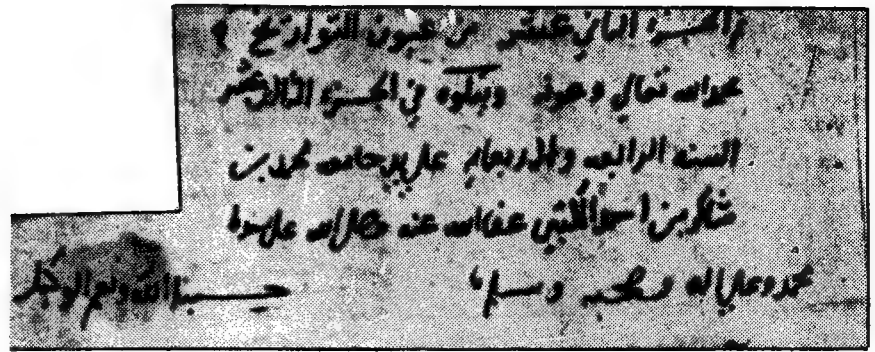 الجزء الثاني عشر من عيون التواريخ
بحمد الله تعالى وعونه ويتلوه في الجزء الثالث عشر
السنه الرابعه والاربعايه على يد جامعه محمد بن
شاكر بن احمد الكتبي عفا الله عنه وصلى الله على سيدنا
محمد وعلى اله وصحبه وسلم حسبنا الله ونعم الوكيل